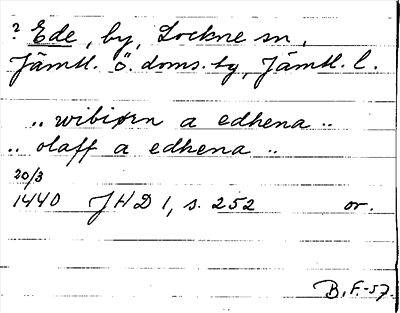 ? Ede, by, Lockne sn,
Jämtl. ö. doms. tg, Jämtl. l.
.. wibiørn a edhena ..
.. olaff a edhena ..
20/3
1440 JHD 1, s. 252 or.
B. F.-57.